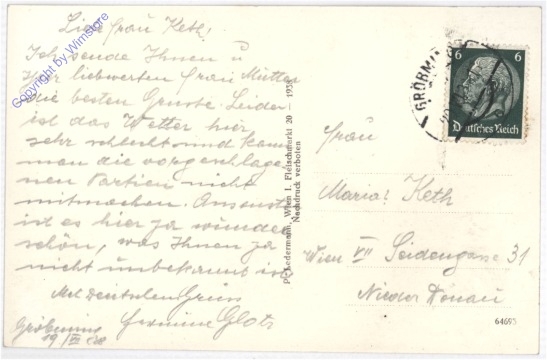 Liebe Frau Keth!
Ich sende Ihnen u
Ihrer liebwerten Frau Mutter
die besten Grüsse. Leider
ist das Wetter hier
sehr schlecht und kann
man die vorgeschlage-
nen Partien nicht
mitmachen. Ansonst
ist es hier ja wunder
schön, was Ihnen ja
nicht unbekannt ist.
Mit Deutschen Gruss
Hermine Glots
Gröbming
19/VI
Copyright by WimStore
P. Ledermann, Wien I. Fleischmarkt 20 - 193
Nachdruck verboten
GRÖBMI
6 6
Deutsches Reich
Frau
Maria Keth
Wien VII Seidengasse 31
Nieder Donau
64695